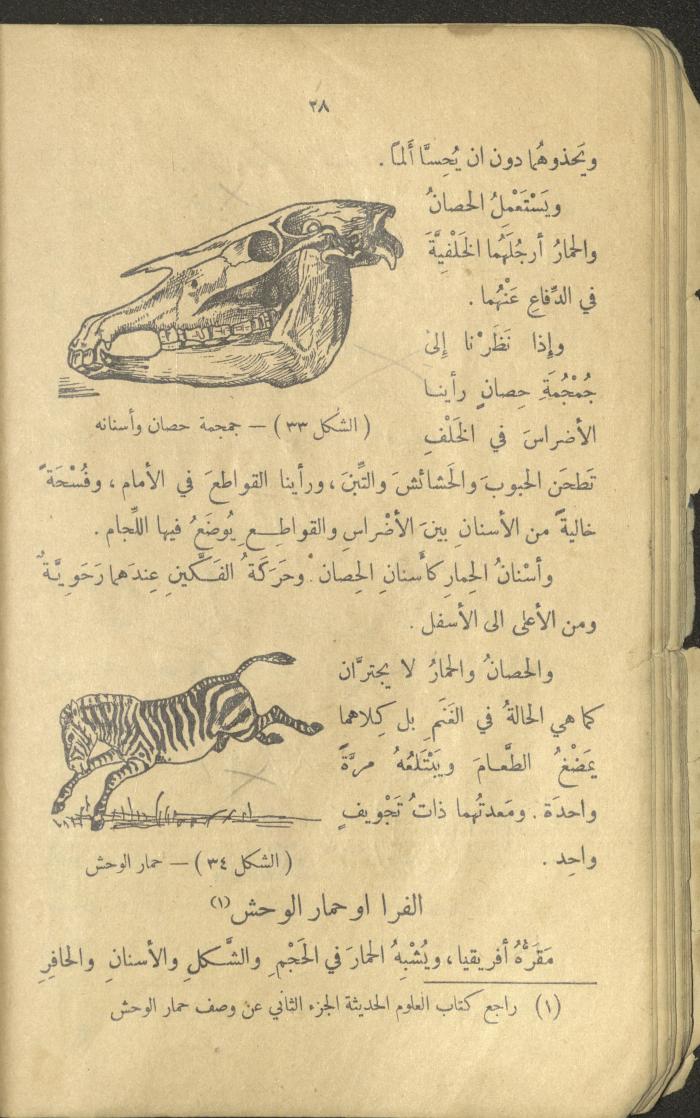 ٣٨
ويَحذوهُما دون ان يُحِسَّا أَلماً .
ويَسْتَعْمِلُ الحصانُ
والحمارُ أرجُلَهُما الخَلْفِيَّةَ
في الدِّفاعِ عَنْهُما .
وإِذا نَظَرْنا إِلى
جُمْجُمَةِ حِصانٍ رأينا
الأضراسَ في الخَلْفِ
تَطحَن الحبوبَ والحَشائشَ والتِّبنَ ، ورأينا القواطعَ في الأمام ، وفُسْحَةً
خاليةً من الأسنانِ بينَ الأضْراسِ والقواطِعِ يُوضَعُ فيها اللِّجام .
وأسْنانُ الحِمارِ كأسنانِ الحِصان . وحَرَكَةُ الفَكَّينِ عِندَهما رَحَوِيَّةٌ
ومن الأعلى الى الأسفل .
والحصانُ والحمارُ لا يجترَّان
كما هي الحالةُ في الغَنَمِ بل كِلاهما
يمَضْغُ الطَّعامَ ويَبْتَلعُهُ مرَّةً
واحدَة . ومَعدتُهما ذاتُ تَجْويفٍ
واحِد .
( الشكل ٣٣ ) – جمجمة حصان وأسنانه
( الشكل ٣٤ ) – حمار الوحش
الفرا او حمار الوحش (١)
مَقَرُّهُ أفريقيا ، ويُشْبِهُ الحمارَ في الحَجْمِ والشَّكلِ والأسنانِ والحافِرِ
(١) راجع كتاب العلوم الحديثة الجزء الثاني عن وصف حمار الوحش